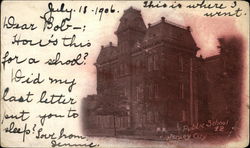 July-18-1906.
This is where I
went.
Dear Bob-;
How's this
for a shod?
Did my
last letter
put you to
sleep?
Public School
12
Jersey City